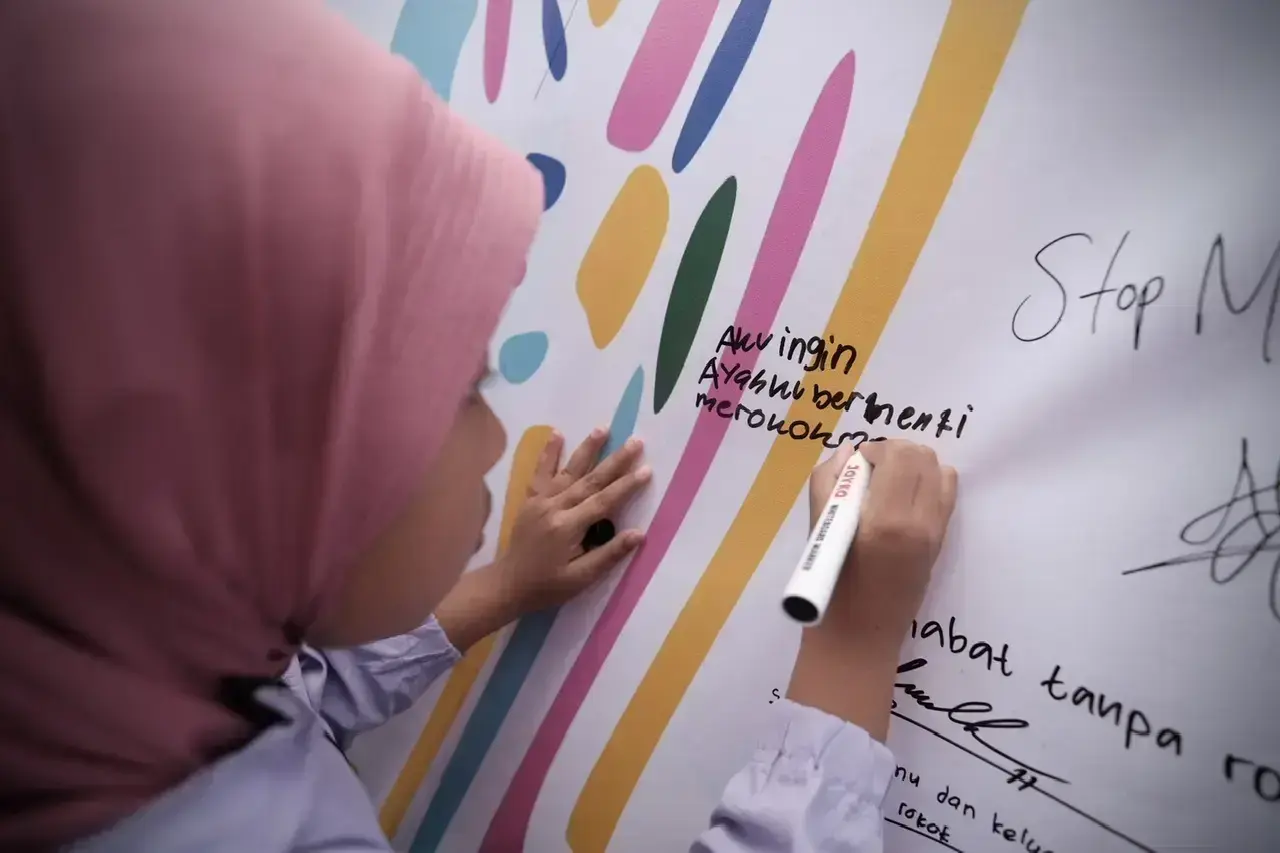 Aku ingin
Ayahku berhenti
merokok
Stop M
JOYKO WHITEBOARD MARKER
habat tanpa ro
nu dan kelu
rokok